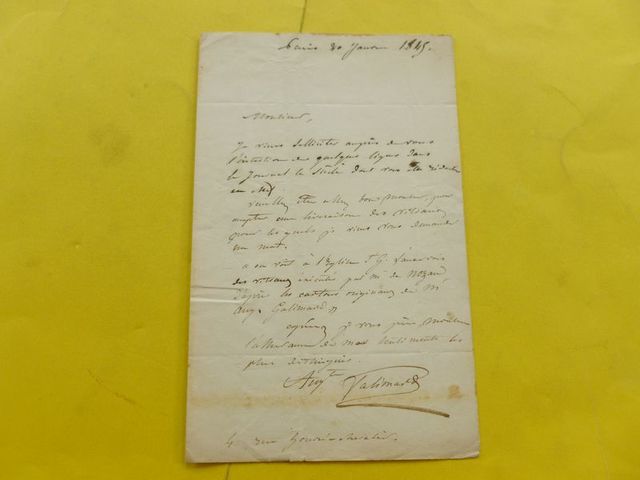 Paris 20 Janvier 1845.
Monsieur,
Je viens solliciter auprès de vous
l'insertion de quelques lignes dans
le Journal le Siècle dont vous êtes rédacteur
en chef.
veuillez être assez bon Monsieur, pour
accepter une livraison des vitraux
pour les quels je viens vous demander
un mot.
" on voit à l'Eglise St G. l'auxerrois
des vitraux exécutés par Mr de Nozan
d'après les cartons originaux de Mr
Aug. Galimard "
agréez je vous prie, Monsieur
l'assurance de mes sentiments les
plus distingués.
Augte Galimard
4 rue